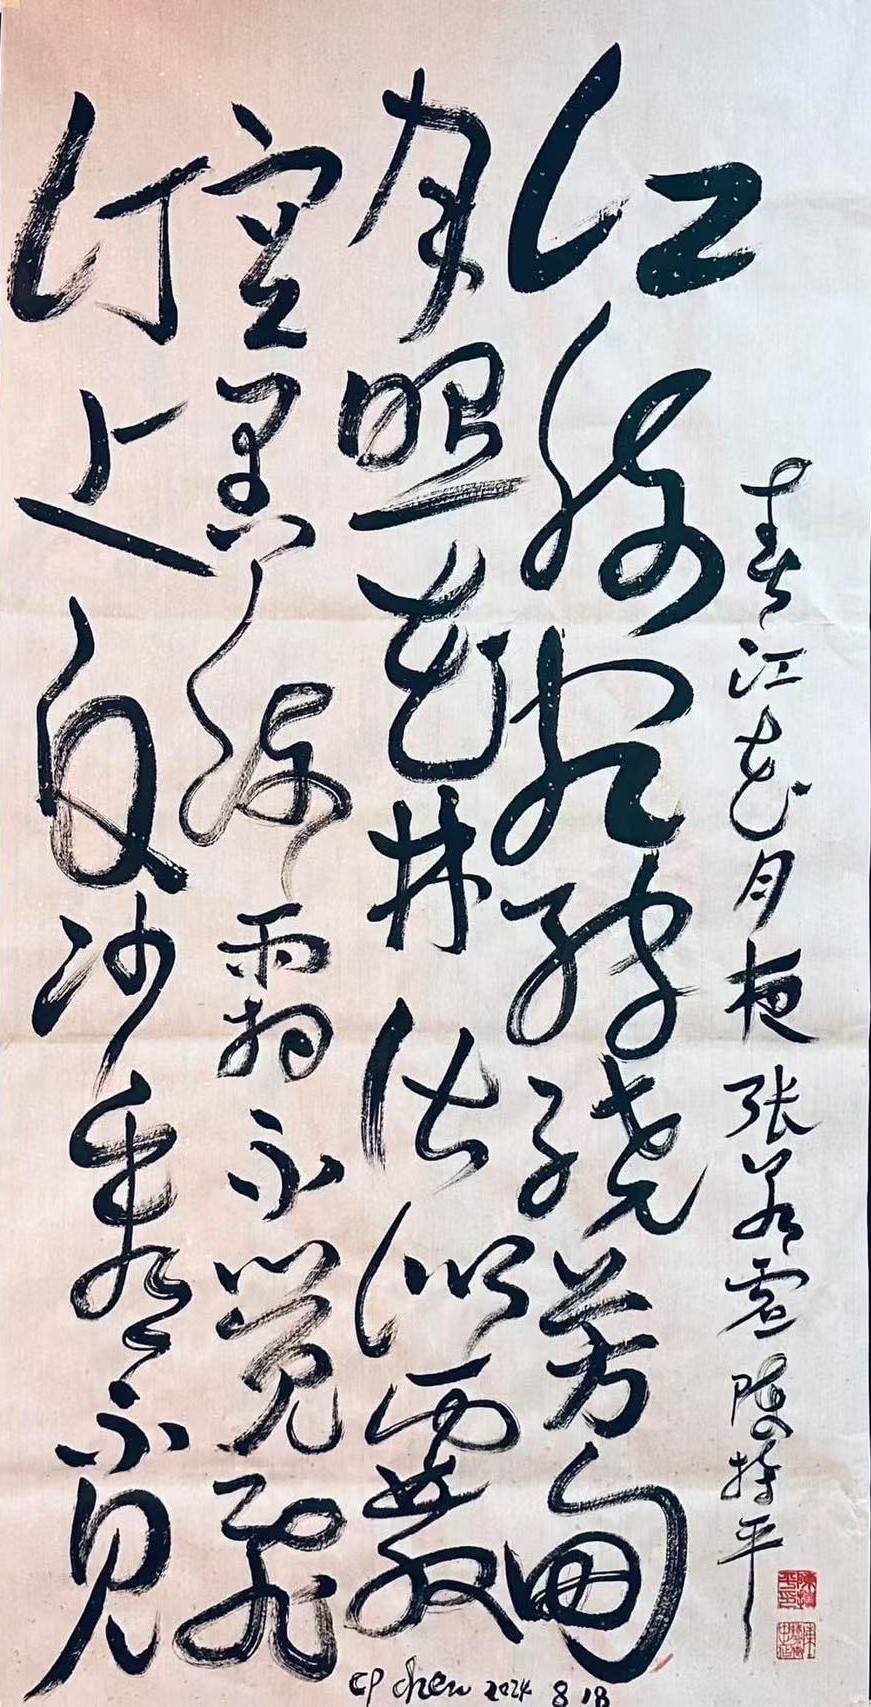 春江花月夜 张若虚 陈持平
江流宛转绕芳甸
月照花林皆似霰
空里流霜不觉飞
汀上白沙看不见
CP Chen 2024 8 18